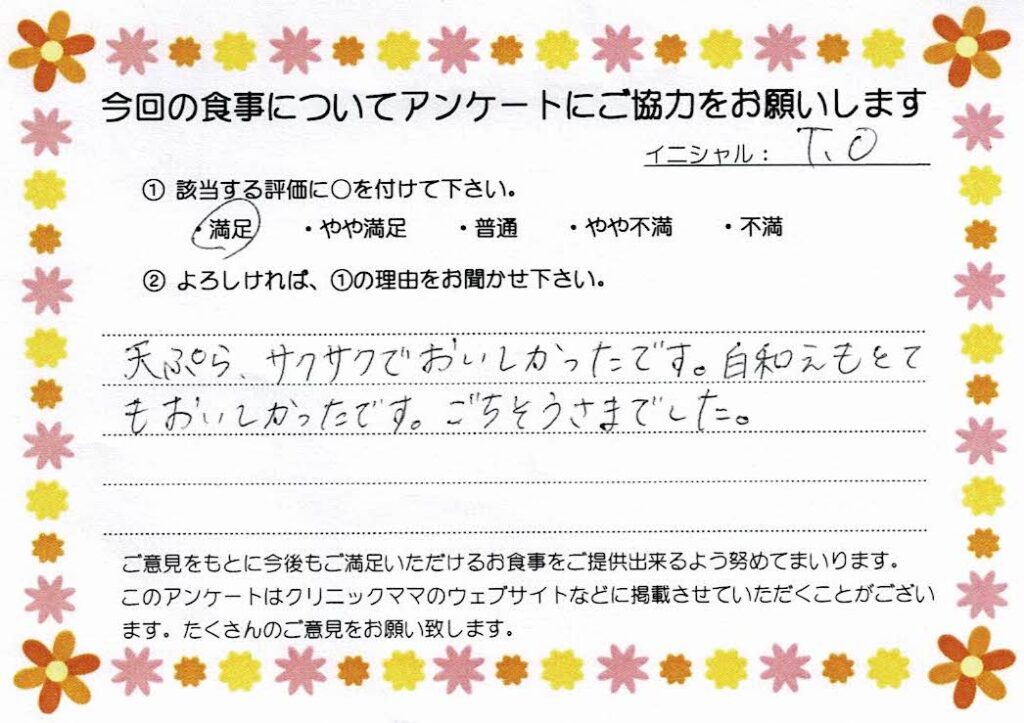 今回の食事についてアンケートにご協力をお願いします
イニシャル： T、O
① 該当する評価に○を付けて下さい。
・満足 ・やや満足 ・普通 ・やや不満 ・不満
② よろしければ、①の理由をお聞かせ下さい。
天ぷら、サクサクでおいしかったです。白和えもとて
もおいしかったです。ごちそうさまでした。
ご意見をもとに今後もご満足いただけるお食事をご提供出来るよう努めてまいります。
このアンケートはクリニックママのウェブサイトなどに掲載させていただくことがござい
ます。たくさんのご意見をお願い致します。